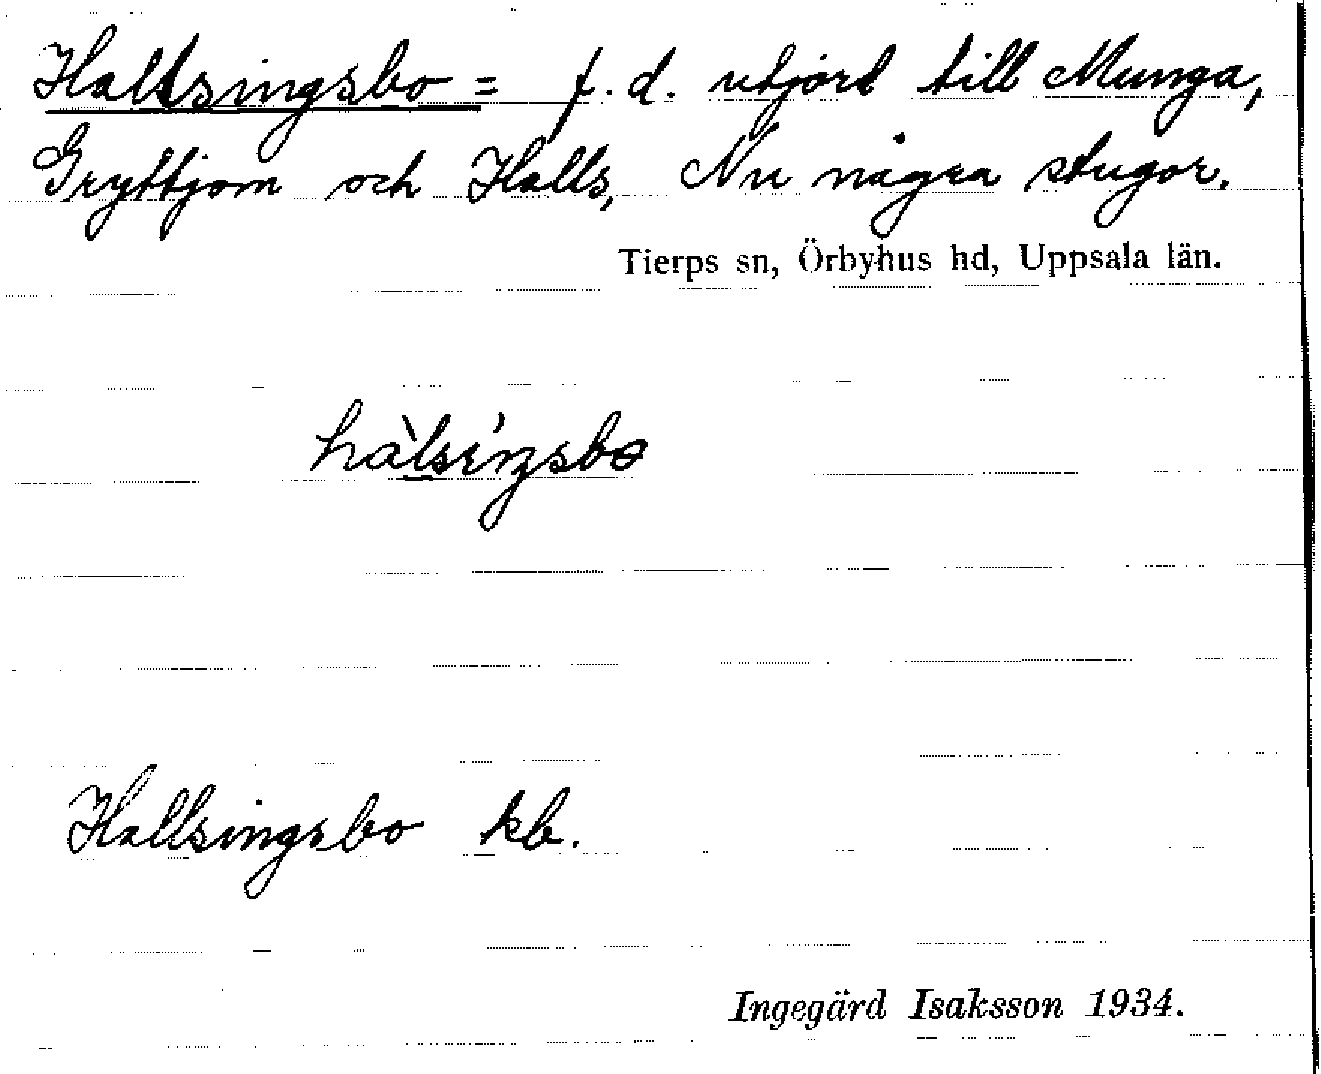 Hallsingsbo = f. d. utjord till Munga,
Gryttjom och Halls, Nu några stugor.
Tierps sn, Örbyhus hd, Uppsala län.
hàlsíŋsbo
Hallsingsbo kb.
Ingegärd Isaksson 1934.